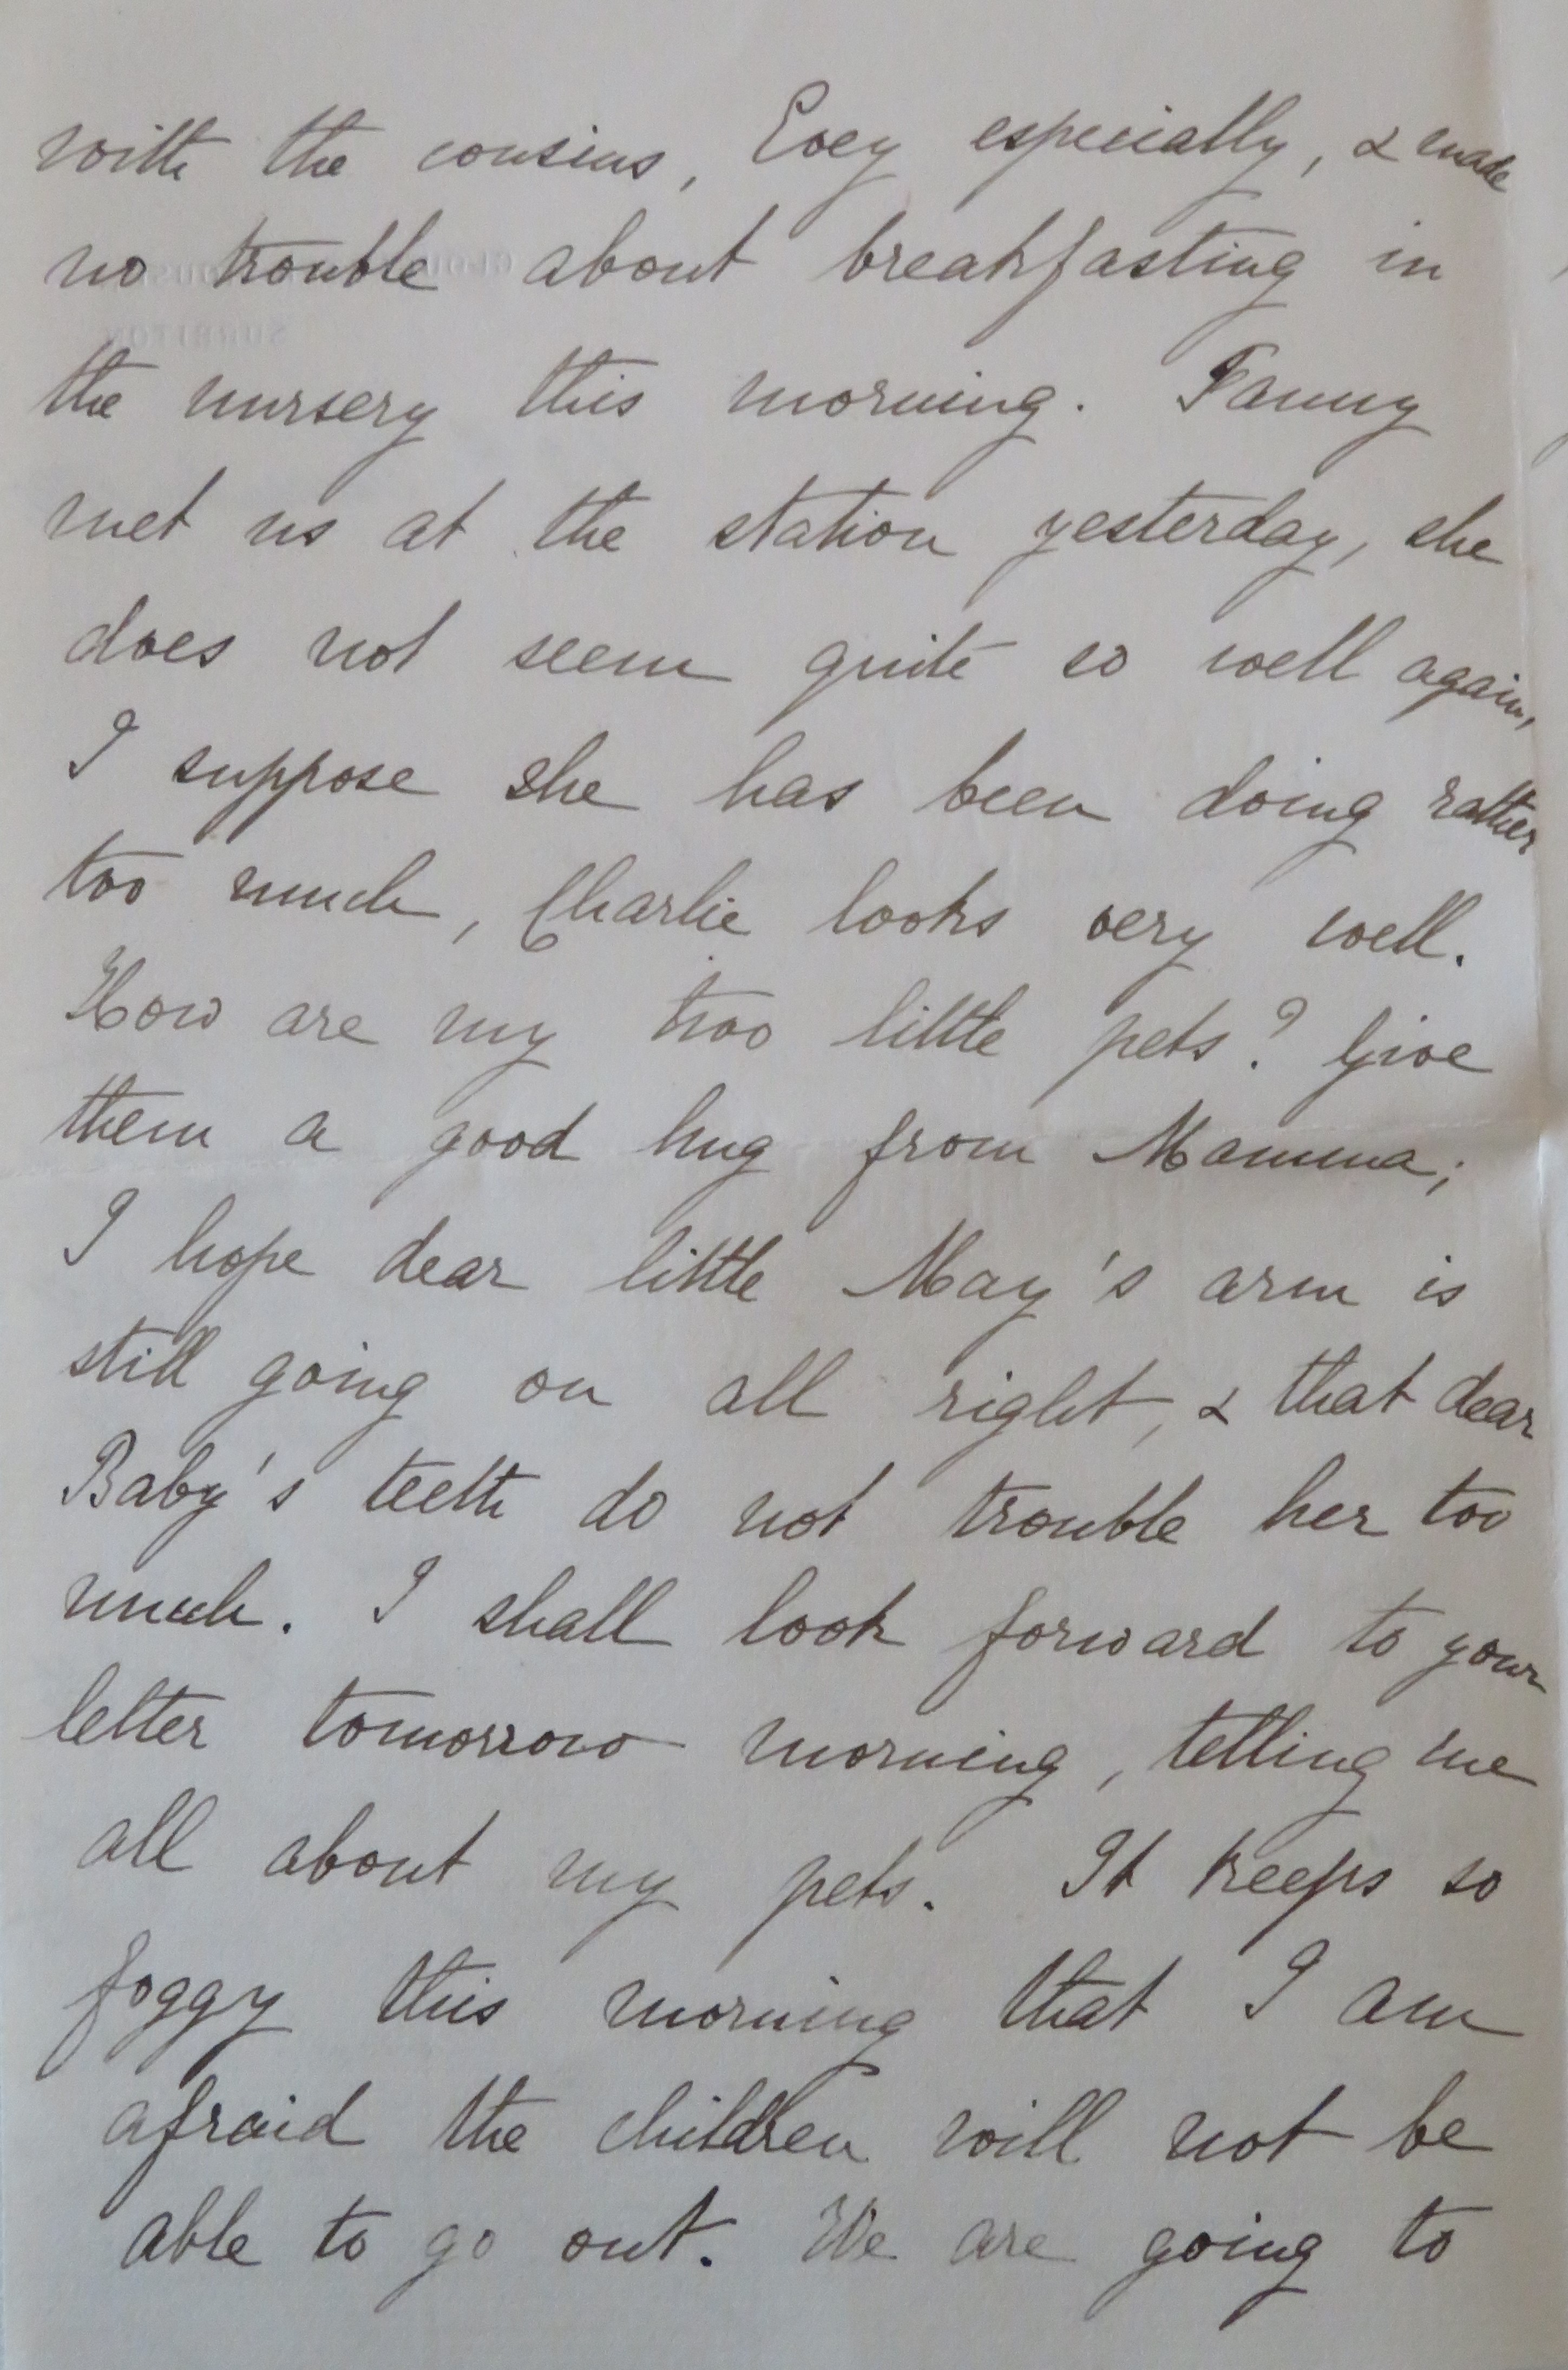 with the cousins, Evey especially, & made
no trouble about breakfasting in
the nursery this morning. Fanny
met us at the station yesterday, she
does not seem quite so well again,
I suppose she has been doing rather
too much, Charlie looks very well.
How are my two little pets? Give
them a good hug from Mamma;
I hope dear little May's arm is
still going on all right, & that dear
Baby's teeth do not trouble her too
much. I shall look forward to your
letter tomorrow morning, telling me
all about my pets. It keeps so
foggy this morning that I am
afraid the children will not be
able to go out. We are going to